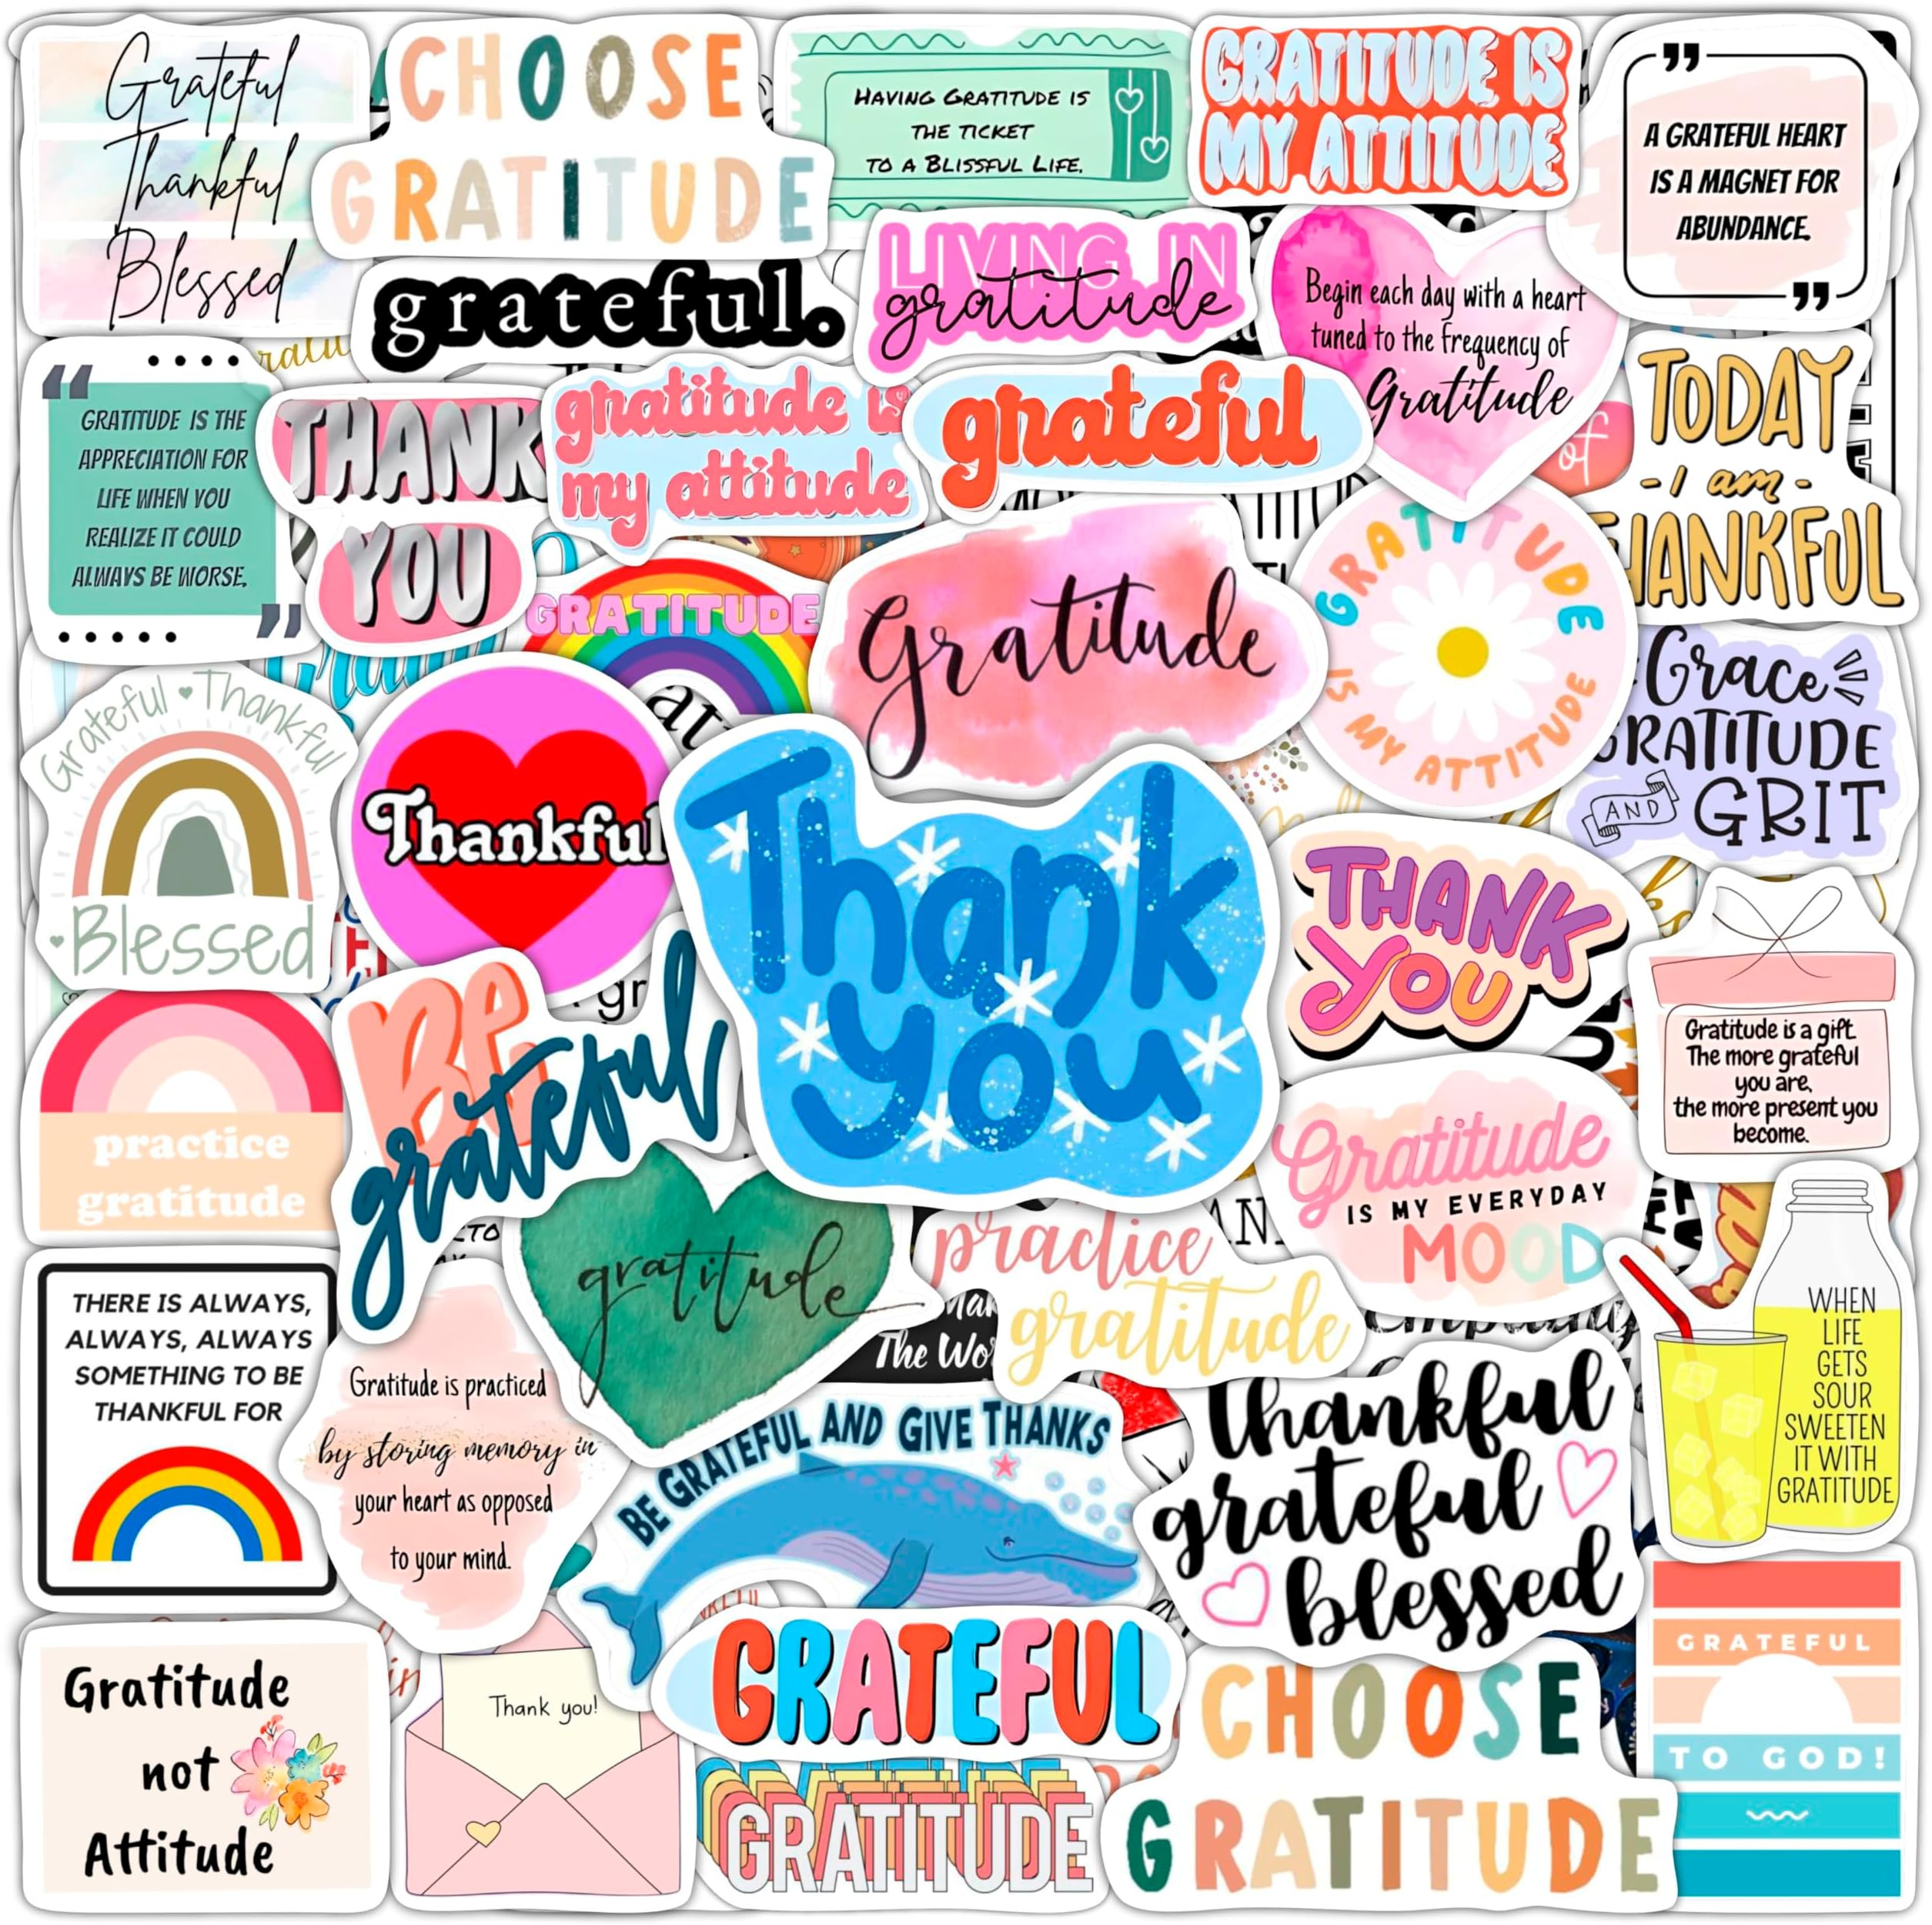 Grateful
Thankful
Blessed
CHOOSE
GRATITUDE
HAVING GRATITUDE IS
THE TICKET
TO A BLISSFUL LIFE.
GRATITUDE IS
MY ATTITUDE
A GRATEFUL HEART
IS A MAGNET FOR
ABUNDANCE.
grateful.
LIVING IN
gratitude
Begin each day with a heart
tuned to the frequency of
Gratitude
GRATITUDE IS THE
APPRECIATION FOR
LIFE WHEN YOU
REALIZE IT COULD
ALWAYS BE WORSE.
THANK
YOU
gratitude is
my attitude
grateful
of
TODAY
- I am -
THANKFUL
GRATITUDE
Gratitude
GRATITUDE
IS MY ATTITUDE
Grace
GRATITUDE
AND GRIT
Grateful Thankful
Blessed
Thankful
Thank
you
THANK
YOU
Gratitude is a gift.
The more grateful
you are,
the more present you
become.
practice
gratitude
Be
grateful
gratitude
practice
gratitude
Gratitude
IS MY EVERYDAY
MOOD
WHEN
LIFE
GETS
SOUR
SWEETEN
IT WITH
GRATITUDE
THERE IS ALWAYS,
ALWAYS, ALWAYS
SOMETHING TO BE
THANKFUL FOR
Gratitude is practiced
by storing memory in
your heart as opposed
to your mind.
The
BE GRATEFUL AND GIVE THANKS
thankful
grateful
blessed
Gratitude
not
Attitude
Thank you!
GRATEFUL
GRATITUDE
CHOOSE
GRATITUDE
GRATEFUL
TO GOD!